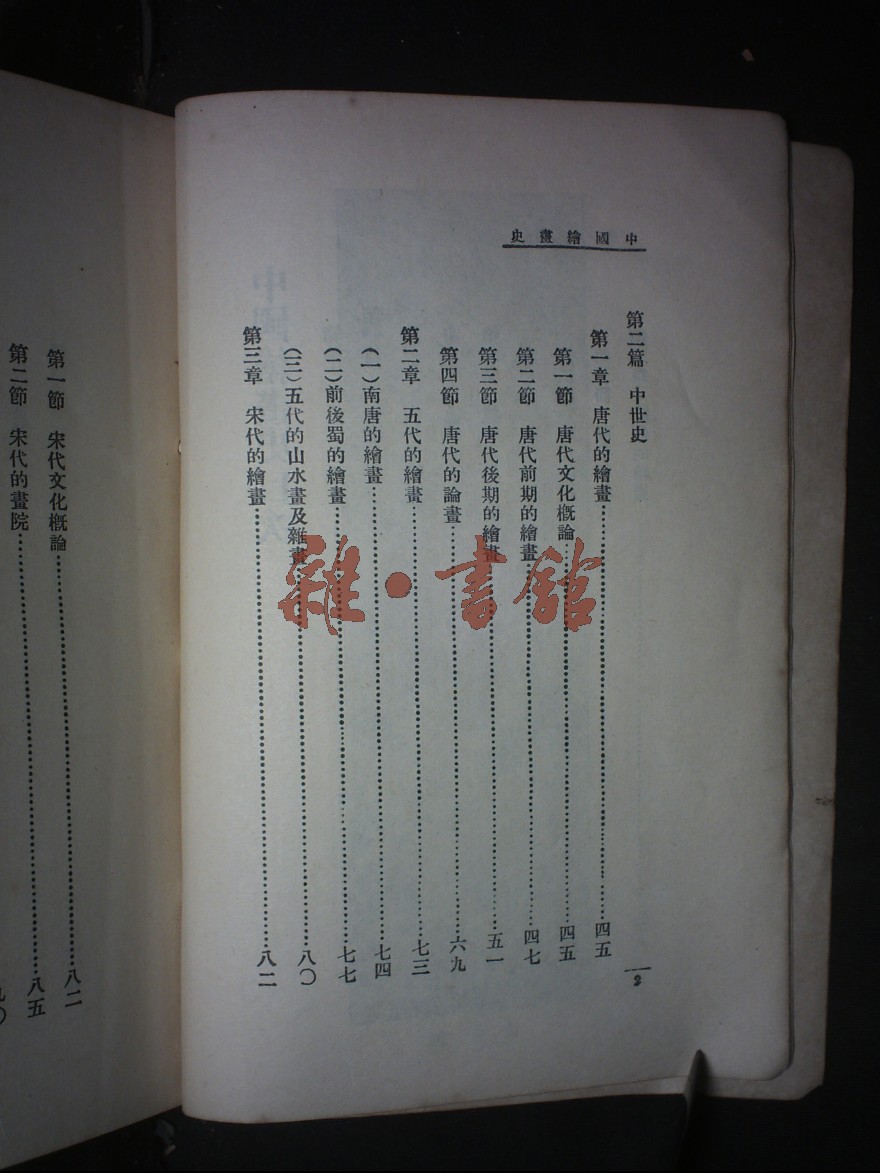 中國繪畫史
第二篇 中世史
第一章 唐代的繪畫……四五
第一節 唐代文化概論……四五
第二節 唐代前期的繪畫……四七
第三節 唐代後期的繪畫……五一
第四節 唐代的論畫……六九
第二章 五代的繪畫……七三
(一)南唐的繪畫……七四
(二)前後蜀的繪畫……七七
(三)五代的山水畫及雜畫……八〇
第三章 宋代的繪畫……八二
2
第一節 宋代文化概論……八二
第二節 宋代的畫院……八五
九〇
雜·書館